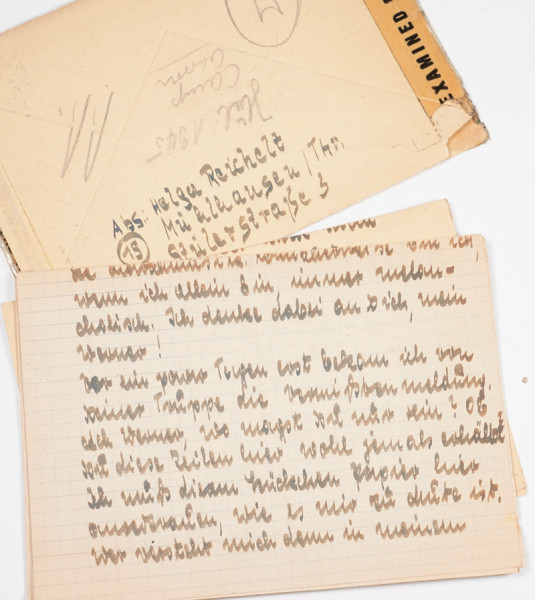 EXAMINED
1945
Camp
Abs. Helga Reichelt
Mühlhausen / Thr.
(15)
ich,
wenn ich allein bin, immer melan-
cholisch. Ich denke dabei an Dich, mein
Werner!
Vor ein paar Tagen erst bekam ich von
Deiner Truppe die Vermißtenmeldung.
Ach Werner, wo magst Du nur sein? Ob
Du diese Zeilen hier wohl jemals erhältst
Ich muß diesem Stückchen Papier hier
anvertrauen, wie es mir zu Mute ist.
Wer versteht mich denn in meinem